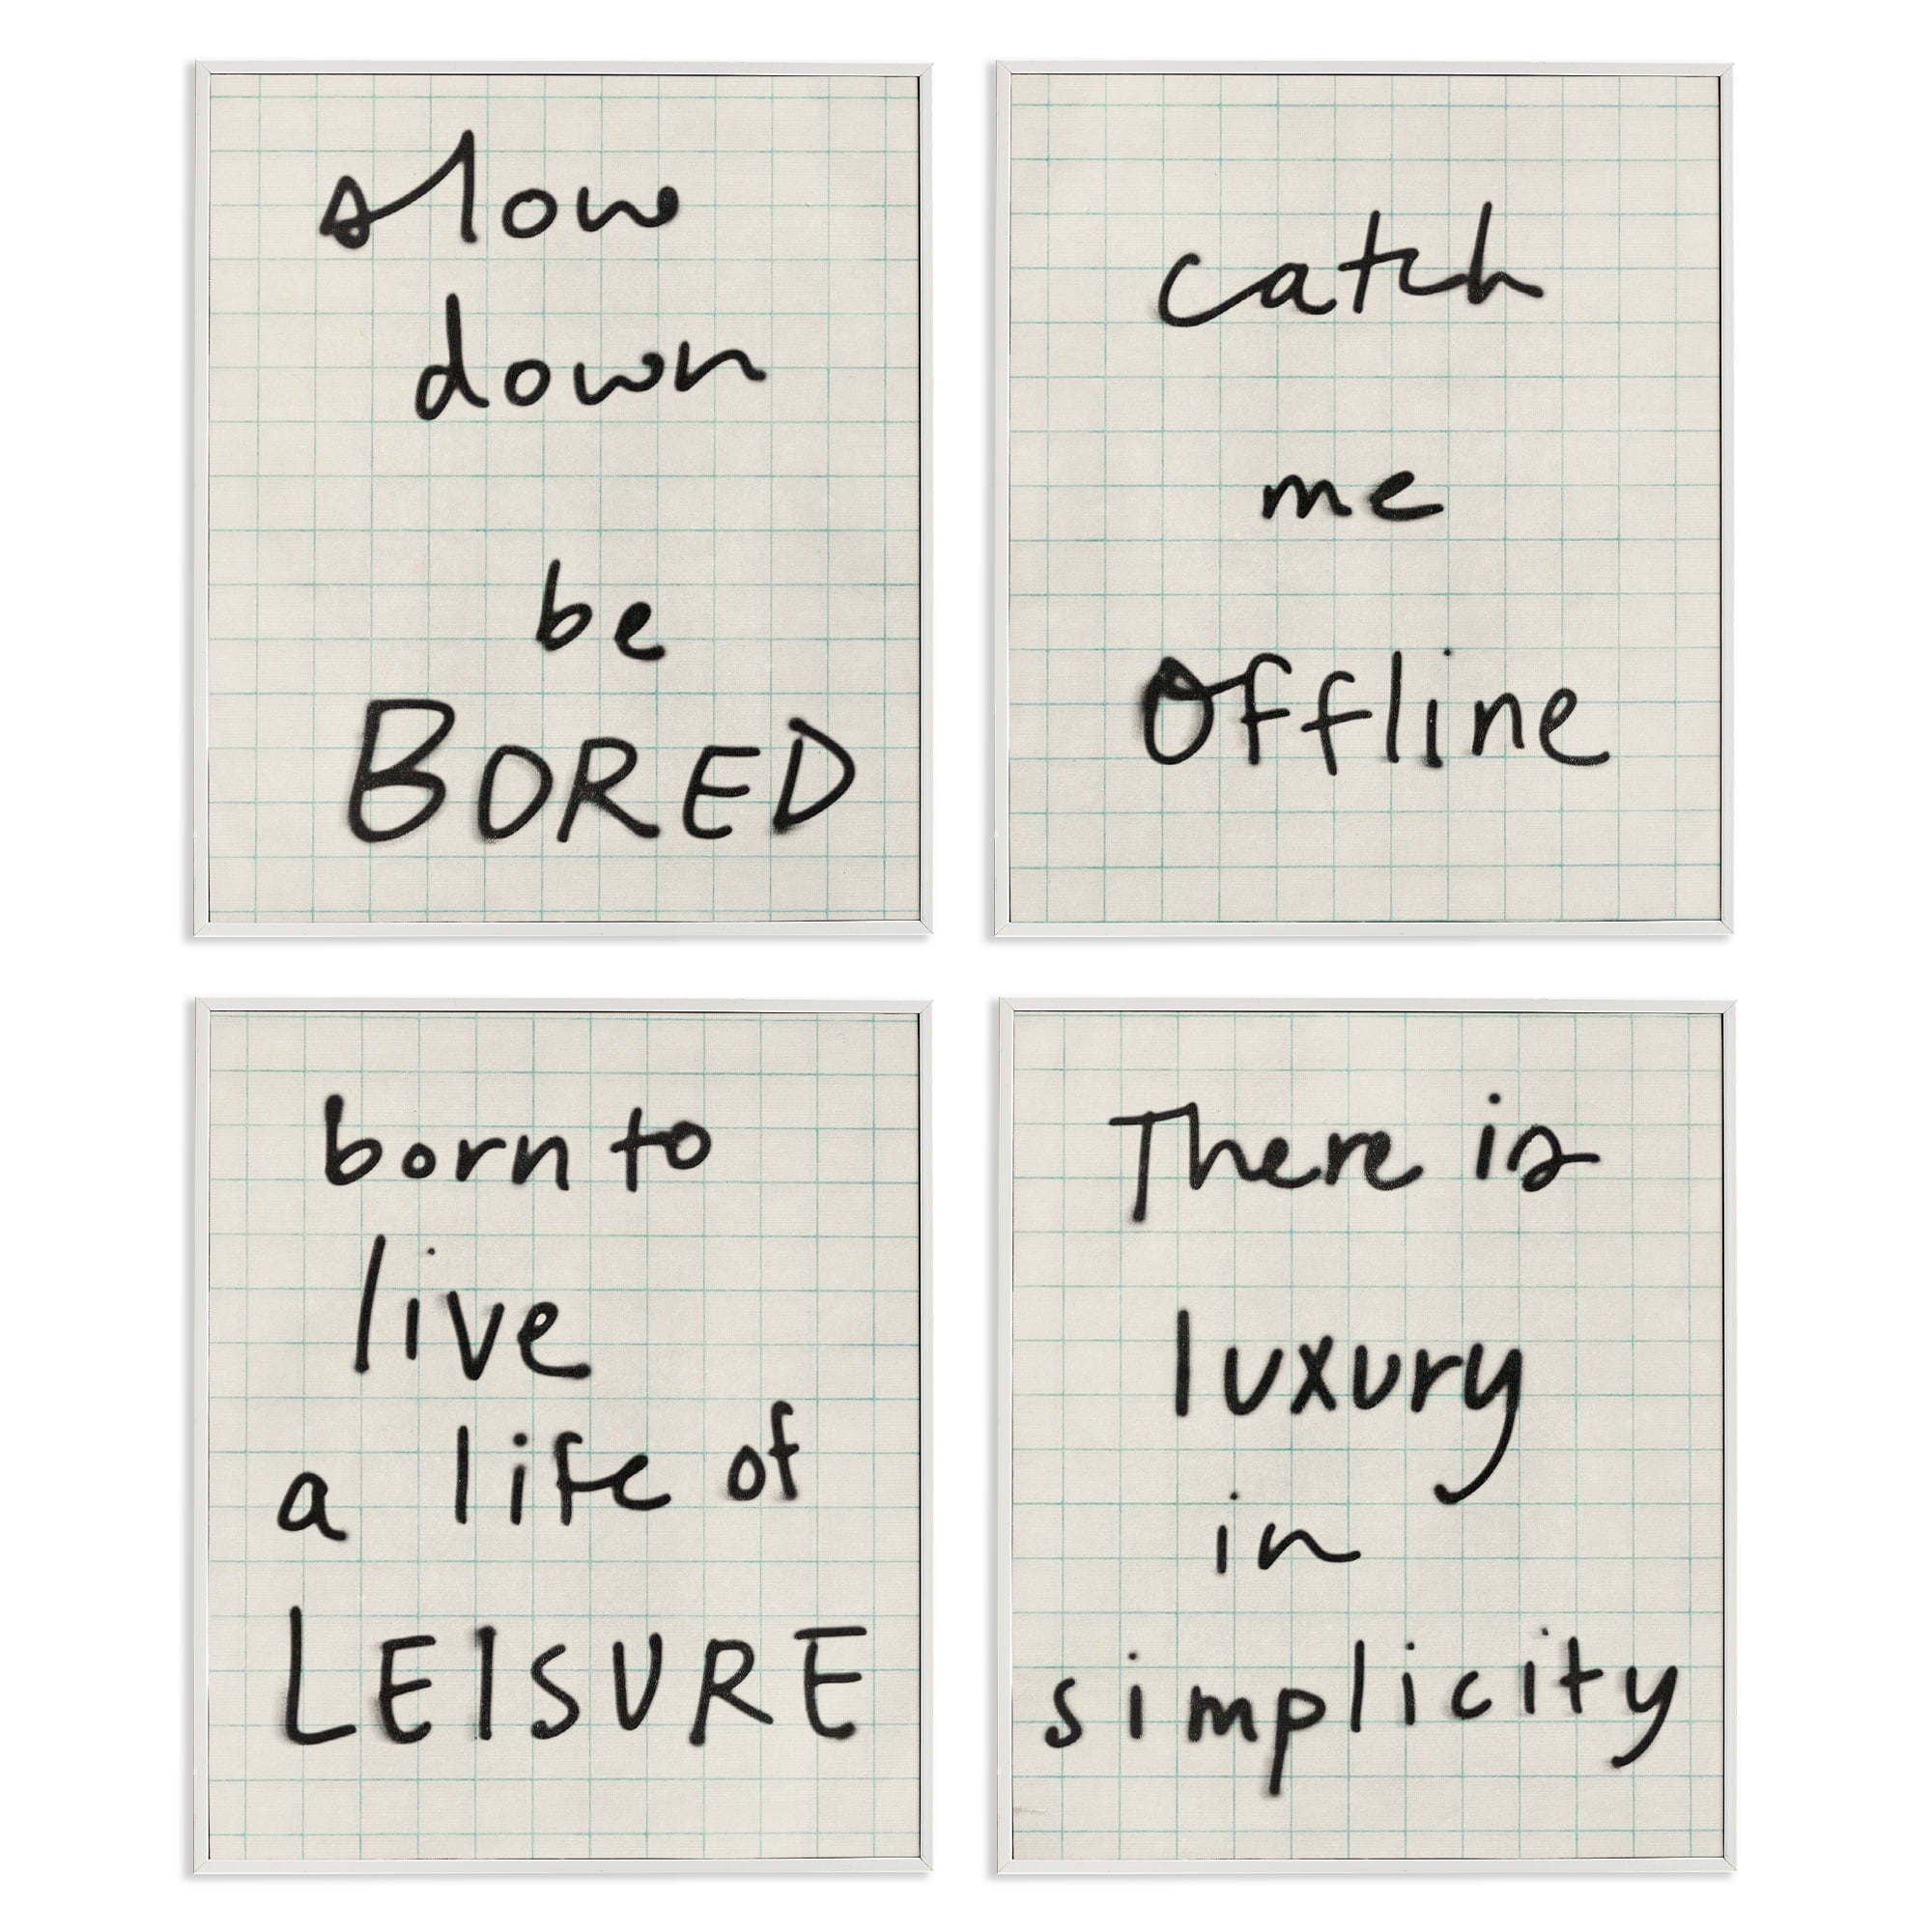 slow
down
be
BORED
catch
me
Offline
born to
live
a life of
LEISURE
There is
luxury
in
simplicity